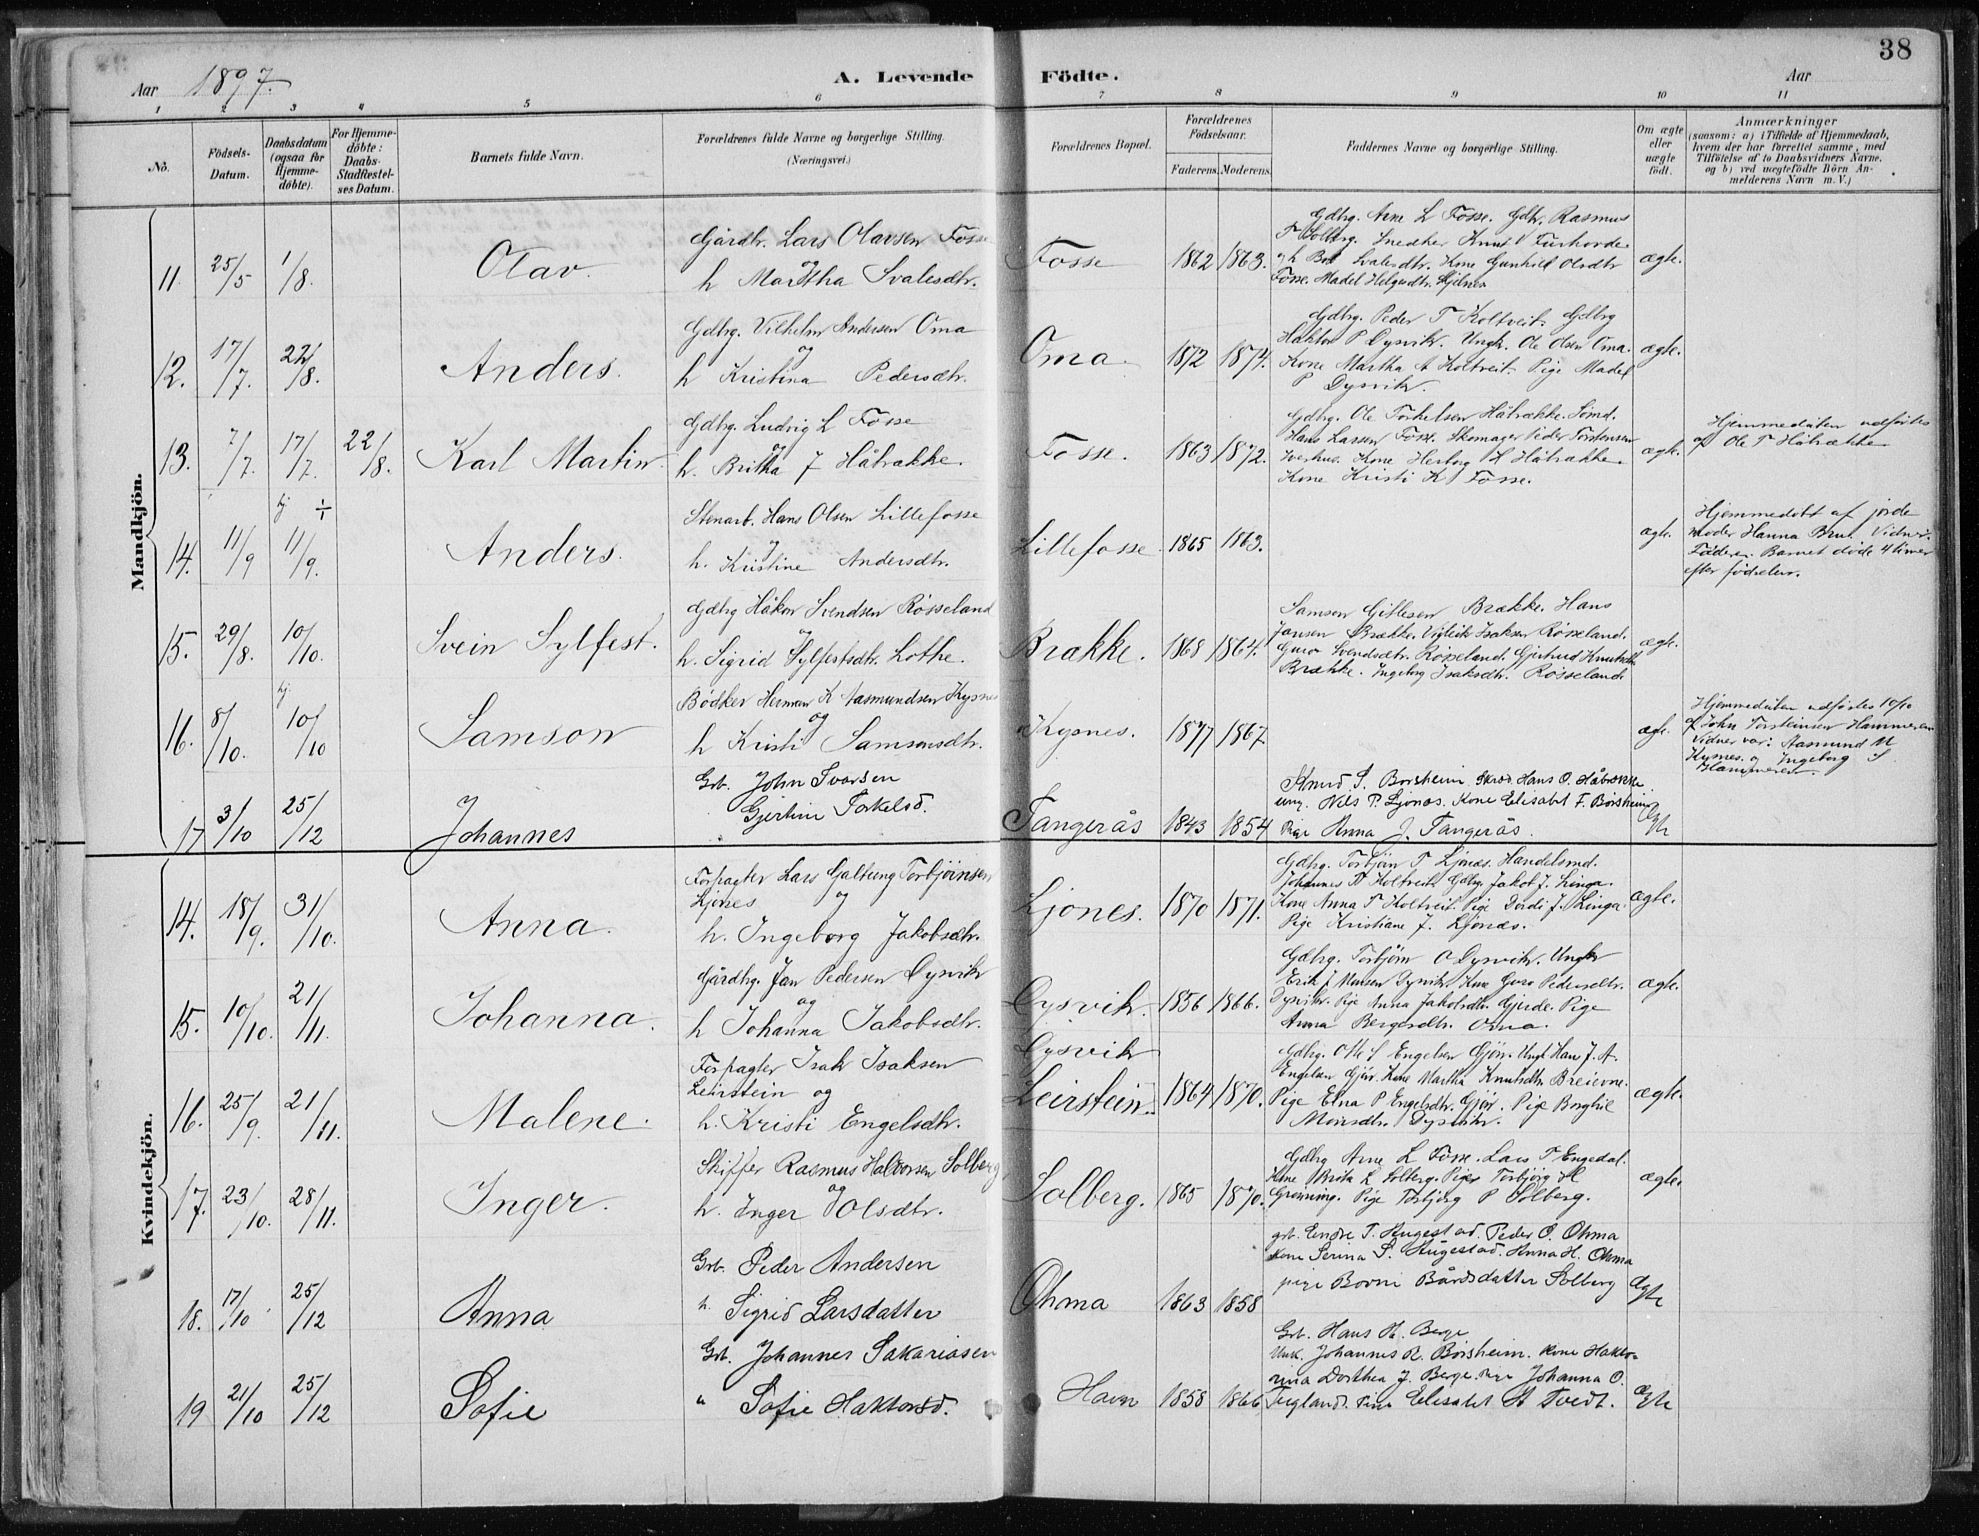 38
Aar 1897.
A. Levende Födte.
Aar
1 2 3 4 5 6 7 8 9 10 11
No.
Födsels-Datum.
Daabsdatum (ogsaa for Hjemmedöbte).
For Hjemmedöbte: Daabs-Stadfæstelses Datum.
Barnets fulde Navn.
Forældrenes fulde Navne og borgerlige Stilling. (Næringsvei.)
Forældrenes Bopæl.
Forældrenes Födselsaar.
Faderens. Moderens.
Faddernes Navne og borgerlige Stilling.
Om ægte eller uægte født.
Anmærkninger
(saasom: a) i Tilfælde af Hjemmedaab, hvem der har forrettet samme, med Tilföielse af to Daabsvidners Navne, og b) ved uægtefödte Börn Anmelderens Navn m. V.)
Mandkjön.
11 25/5 1/8. Olav.
Gårdbr. Lars Olavsen Fosse
og
h Martha Svalesdtr.
Fosse 1862 1863.
Gdbrg. Arne L Fosse. Gdbr. Rasmus
T Solberg. Snedker Knut Furhovde
Svalesdtr. Kone Gunhild Olsdtr
Fosse. Madel Helgesdtr.
ægte.
12. 17/7. 22/8. Anders.
Gdbrg. Vilhelm Andersen Oma
og
h Kristina Pedersdtr.
Oma. 1872 1874.
Gdbrg. Peder T Koltveit. Gdbrg
Hakton P Dysvik. Ungk. Ole Olsen Oma.
Kone Martha A Koltveit. Pige Madel
P Dysvik.
ægte.
13. 7/7. 17/7. 22/8. Karl Martin.
Gdbrg. Ludvig L Fosse
og
h. Britha J Håbrække.
Fosse. 1863 1872.
Gdbrg. Ole Torkelsen Håbrække. Sømd.
Hans Larsen Fosse. Skomager Peder Torstensen
Kone Herborg H Håbrække.
Kone Kristi K Fosse.
ægte.
Hjemmedåben udførtes
af Ole T Håbrække
14. 11/9 hj. ÷ 11/9. Anders.
Stenarb. Hans Olsen Lillefosse
og
h. Kristine Andersdtr.
Lillefosse. 1865 1863.
ægte.
Hjemmedøbt af jorde
moder Hanna Brut. Vidner.
Faderen. Barnet døde 4 timer
efter fødselen.
15. 29/8. 10/10. Svein Sylfest.
Gdbrg Håkon Svendsen Røsseland
og
h. Sigrid Sylfestsdtr. Lothe.
Brække. 1868 1864.
Samson Gitlesen Brække. Hans
Jansen Brække. Vigleik Isaksen Røsseland.
Guro Svendsdtr. Røsseland. Gjertrud Knutsdtr
Brække. Ingeborg Isaksdtr. Røsseland.
ægte.
16. 8/10. hj. 10/10 Samson
Bødker Herman K Aasmundsen Kysnes
og
h Kristi Samsonsdtr.
Kysnes. 1877 1867.
ægte.
Hjemmedåben udførtes 10/10
af John Torsteinsen Hammeren
Vidner var: Aasmund M
Kysnes og Ingeborg S
Hammeren.
17 3/10 25/12 Johannes
Grb. John Ivarsen
Gjertine Torkelsd.
Tangerås 1843 1854
Knud S. Borsheim. Hans O. Håbrække
ung. Nils P. Ljonæs. Kone Elisabet F. Borsheim
Pige Anna J. Tangerås.
Ægte
Kvindekjön.
14. 18/9. 31/10. Anna.
Forpagter Lars Galtung Torbjörnsen
Ljones og
h. Ingeborg Jakobsdtr.
Ljones. 1870 1871.
Gdbrg. Torbjön T Ljonæs. Handelsmd.
Johannes Koltveit. Gdbrg. Jakob J. Linga.
Kone Anna T Koltveit. Pige Jordi J. Linga.
Pige Kristiane J. Ljonæs.
ægte.
15. 10/10. 21/11. Johanna.
Gårdbrg. Jan Pedersen Dysvik
og
h Johanna Jakobsdtr.
Dysvik. 1856 1866.
Gdbrg. Torbjörn O Dysvik. Ungkr
Erik J Monsen Dysvik. Kone Guro Pedersdtr.
Dysvik. Pige Anna Jakobsdtr. Gjerde. Pige
Anna Bergesdtr. Oma.
ægte.
16. 25/9. 21/11. Malene.
Forpagter Isak Isaksen
Leirstein og
h. Kristi Engelsdtr.
Dysvik
Leirstein. 1864 1870.
Gdbrg. Engelsen Gjön. Ungk Hans J. A.
Engelsen Gjön. Kone Martha Knutsdtr Breievne.
Pige Elna P Engelsdtr. Gjön. Pige Borghild
Monsdtr. Dysvik.
ægte.
17. 23/10. 28/11. Inger.
Skipper Rasmus Halvorsen Solberg
og
h. Inger Olsdtr.
Solberg. 1865 1870.
Gdbrg Arne L Fosse. Lars T Engedal.
Kone Brita L Solberg. Pige Torbjörg H
Grovning. Pige Torbjörg P Solberg.
ægte.
18. 17/10 25/12 Anna
Grb. Peder Andersen
h. Sigrid Larsdatter
Ohma 1863 1858
grb. Endre T. Hugestad. Peder O. Ohma
kone Serina S. Hugestad. Anna H. Ohma
pige Bovni Bårdsdatter Solberg
Ægte
19 21/10 25/12 Sofie
Grb. Johannes Sakariasen
" Sofie Haktorsd.
Havn 1858 1866
Grb. Hans H. Berge
Unk. Johannes R. Borsheim. kone Hakto-
rina Dorthea J. Berge. pige Johanna O.
Teigland. Pige Elisabet A Tvedt.
Ægte